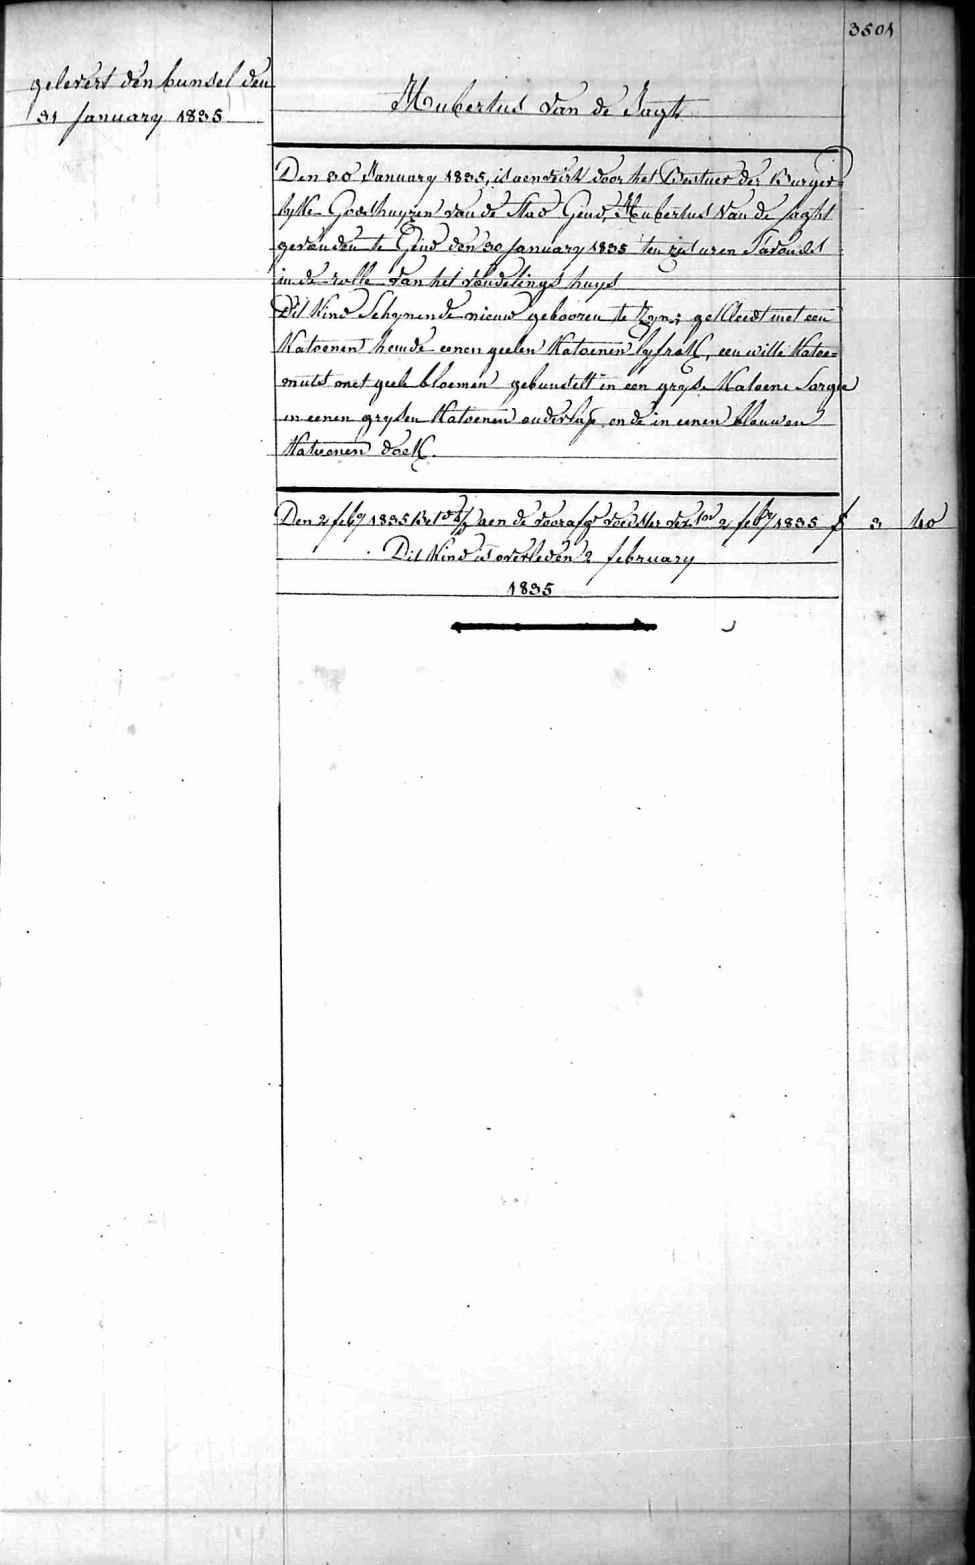 3501
gelevert den bunsel den
31 January 1835
Hubertus Van de Jagt
Den 30 January 1835, is aenveirt door het Bestuer der Burger=
lyke Godshuyzen van de Stad Gend, Hubertus Van de Jaght
gevonden te Gend den 30 January 1835 ten uren s'avonds
in de rolle van het vondelings huys
Dit Kind Schynende nieuw gebooren te zyn; gekleedt met een
Katoenen hemde eenen geelen Katoenen lyfrok, een witte Katoe=
muts met geele bloemen gebunselt in een gryse Katoene Sargie
en eenen grysen Katoenen onderlap, en de in eenen blauwen
Katoenen doek.
Den 2 feby 1835 Bet aen de voorafgd voedster 2 feby 1835 f 3 40
Dit Kind is overleden 2 february
1835